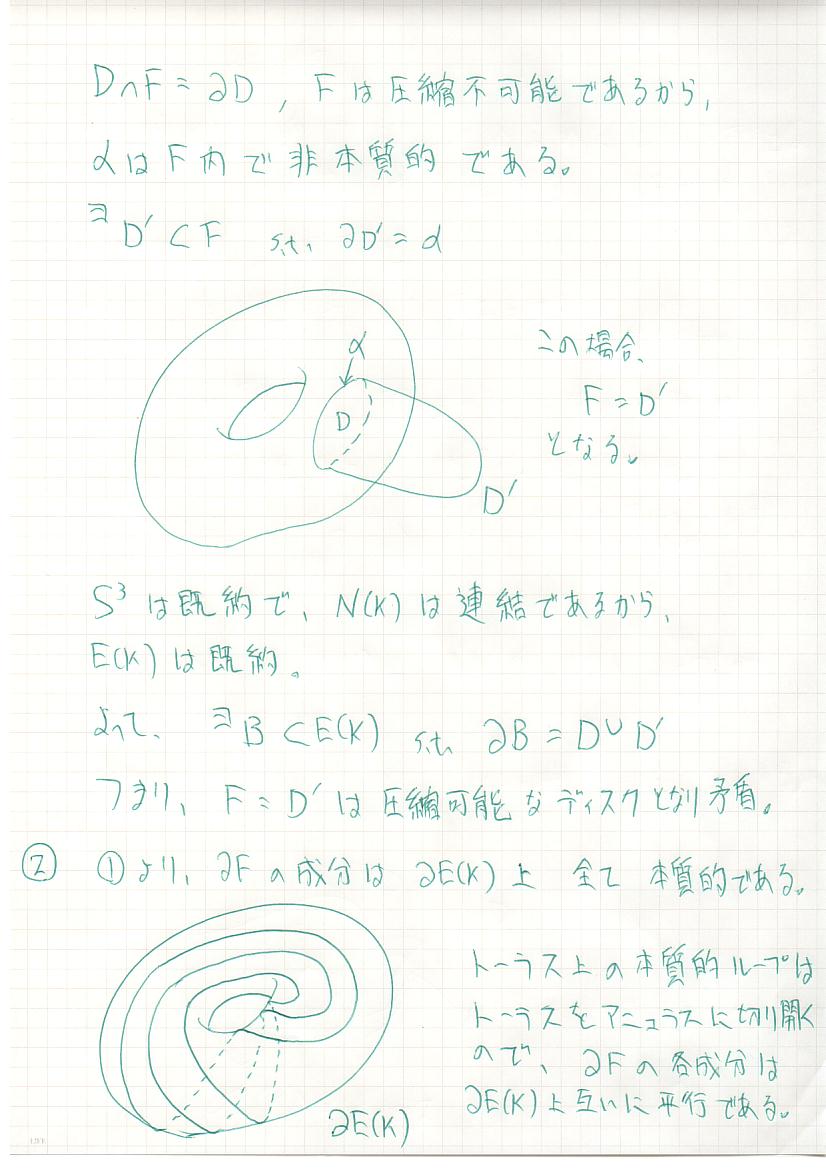 D∩F = ∂D , Fは圧縮不可能であるから,
αはF内で非本質的である。
∃D′⊂F s.t. ∂D′ = α
α
D
D′
この場合、
F = D′
となる。
S³は既約で、N(K)は連結であるから、
E(K)は既約。
よって、∃B⊂E(K) s.t. ∂B = D∪D′
つまり、F = D′は圧縮可能なディスクとなり矛盾。
② ①より、∂Fの成分は∂E(K)上 全て 本質的である。
トーラス上の本質的ループは
トーラスをアニュラスに切り開く
ので、∂Fの各成分は
∂E(K)上互いに平行である。
∂E(K)
LIFE